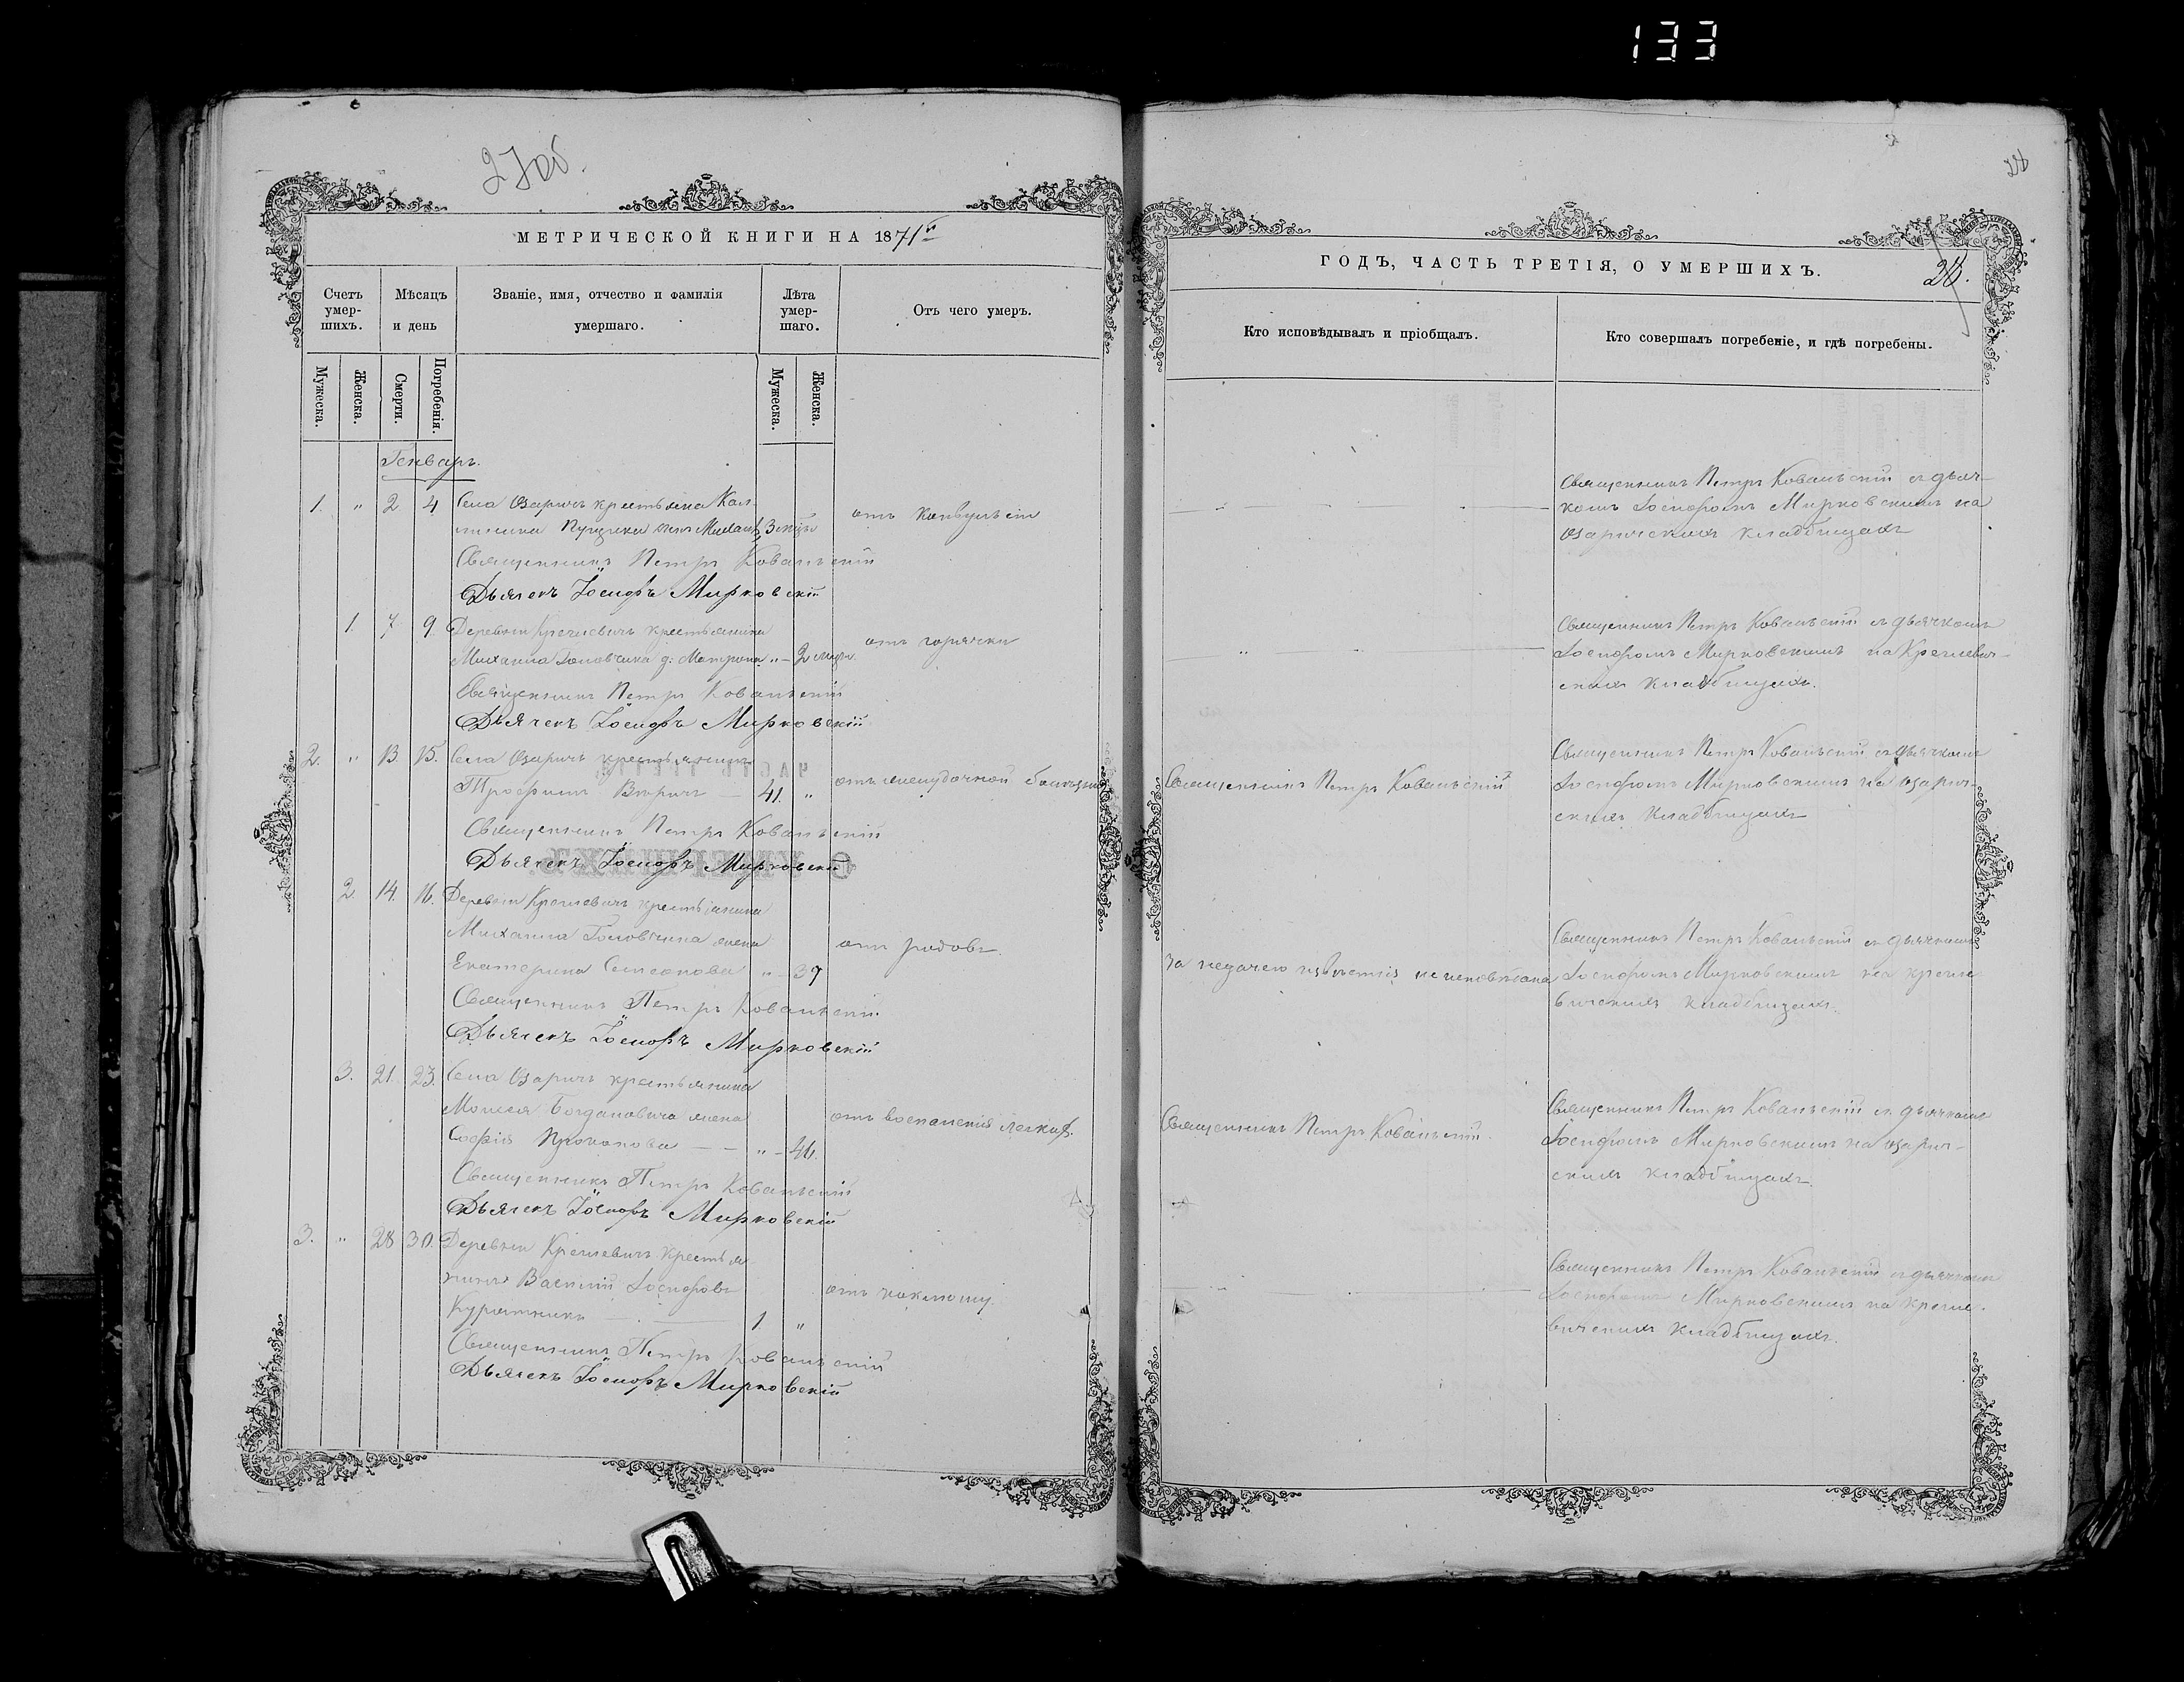 133
27об.
МЕТРИЧЕСКОЙ КНИГИ НА 1871й
Счетъ умер-шихъ.
Мѣсяцъ и день
Званіе, имя, отчество и фамилія умершаго.
Лѣта умер-шаго.
Отъ чего умеръ.
Мужеска.
Женска.
Смерти.
Погребенія.
Мужеска.
Женска.
Генварь.
1. " 2 4 Села Озаричъ крестьянина
сынъ Михаилъ 3 отъ конвульсіи
Священникъ Петръ Кованьскій
Дьячекъ Іосифъ Мирковскій
1. 7 9. Деревни Кречневичъ крестьянина
Михаила Головчика д: Матрона " — 2 отъ горячки
Священникъ Петръ Кованьскій
Дьячекъ Іосифъ Мирковскій
2. " 13. 15. Села Озаричъ крестьянинъ
Трофимъ — 41. "
Священникъ Петръ Кованьскій
Дьячекъ Іосифъ Мирковскій
2. 14. 16. Деревни Кречневичъ крестьянина
Михаила Головчика жена отъ родовъ.
Екатерина Семенова " — 39
Священникъ Петръ Кованьскій
Дьячекъ Іосифъ Мирковскій
3. 21. 23. Села Озаричъ крестьянина
Моисея Богдановича жена отъ воспаленія легкихъ.
Софія Прокопова — — " — 46.
Священникъ Петръ Кованьскій
Дьячекъ Іосифъ Мирковскій
3. " 28 30. Деревни Кречневичъ крестья-
нинъ Василій Іосифовъ отъ коклюшу.
— 1 "
Священникъ Петръ Кованьскій
Дьячекъ Іосифъ Мирковскій
28
ГОДЪ, ЧАСТЬ ТРЕТІЯ, О УМЕРШИХЪ.
28.
Кто исповѣдывалъ и пріобщалъ.
Кто совершалъ погребеніе, и гдѣ погребены.
Священникъ Петръ Кованьскій съ дьяч-
комъ Іосифомъ Мирковскимъ на
Озаричскихъ кладбищахъ
Священникъ Петръ Кованьскій съ дьячкомъ
Іосифомъ Мирковскимъ на Кречневич-
скихъ кладбищахъ.
Священникъ Петръ Кованьскій
Священникъ Петръ Кованьскій съ дьячкомъ
Іосифомъ Мирковскимъ на Озарич-
скихъ кладбищахъ
За недачею извѣстія не исповѣдана
Священникъ Петръ Кованьскій съ дьячкомъ
Іосифомъ Мирковскимъ на Кречне-
вичскихъ кладбищахъ.
Священникъ Петръ Кованьскій.
Священникъ Петръ Кованьскій съ дьячкомъ
Іосифомъ Мирковскимъ на Озарич-
скихъ кладбищахъ.
Священникъ Петръ Кованьскій съ дьячкомъ
Іосифомъ Мирковскимъ на Кречне-
вичскихъ кладбищахъ.